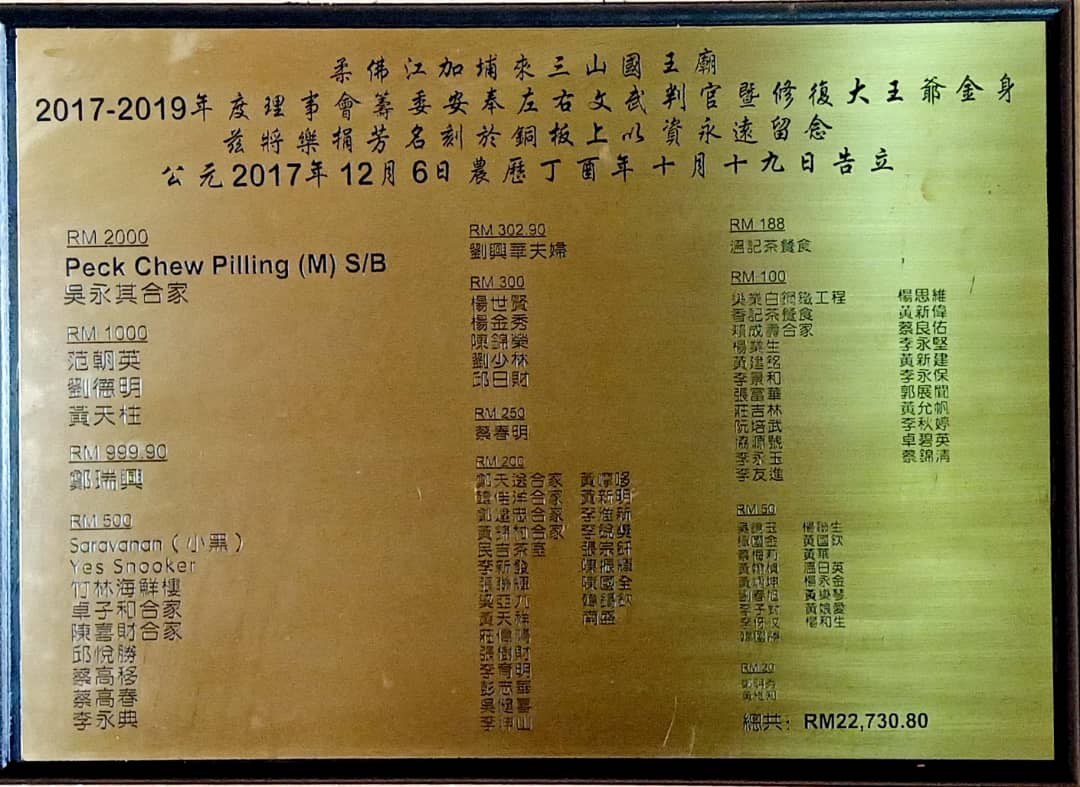 柔佛江加埔來三山國王廟
2017-2019年度理事會籌委安奉左右文武判官暨修復大王爺金身
茲將樂捐芳名刻於銅板上以資永遠留念
公元2017年12月6日農歷丁酉年十月十九日告立
RM 2000
Peck Chew Pilling (M) S/B
吳永其合家
RM 1000
范朝英
劉德明
黃天柱
RM 999.90
鄭瑞興
RM 500
Saravanan（小黑）
Yes Snooker
竹林海鮮樓
卓子和合家
陳喜財合家
邱悅勝
蔡高移
蔡高春
李永典
RM 302.90
劉興華夫婦
RM 300
楊世賢
楊金秀
陳錦榮
劉少林
邱日財
RM 250
蔡春明
RM 200
鄭天送合家
合家
鄭忠合家
合家
民吉茶室
李新發
張聯輝
梁亞九
黃天祥
莊偉
張樹財
李育明
彭志華
吳健喜
李坤山
黃
黃新明
李新
李
張宗
陳振輝
陳國全
南盛
RM 188
溫記茶餐食
RM 100
業白鋼鐵工程
香記茶餐食
賴成壽合家
楊業生
黃建銘
李景和
張富華
莊吉林
阮培武
協源號
李永玉
李友進
楊思維
黃新偉
蔡良佑
李永堅
黃新建
李永保
郭展
黃允帆
李秋婷
卓碧英
蔡錦清
RM 50
蔡梅莉
李子
楊生
黃國欽
黃華
溫日英
楊永金
黃琴
黃娘愛
楊和生
RM 20
總共：RM22,730.80